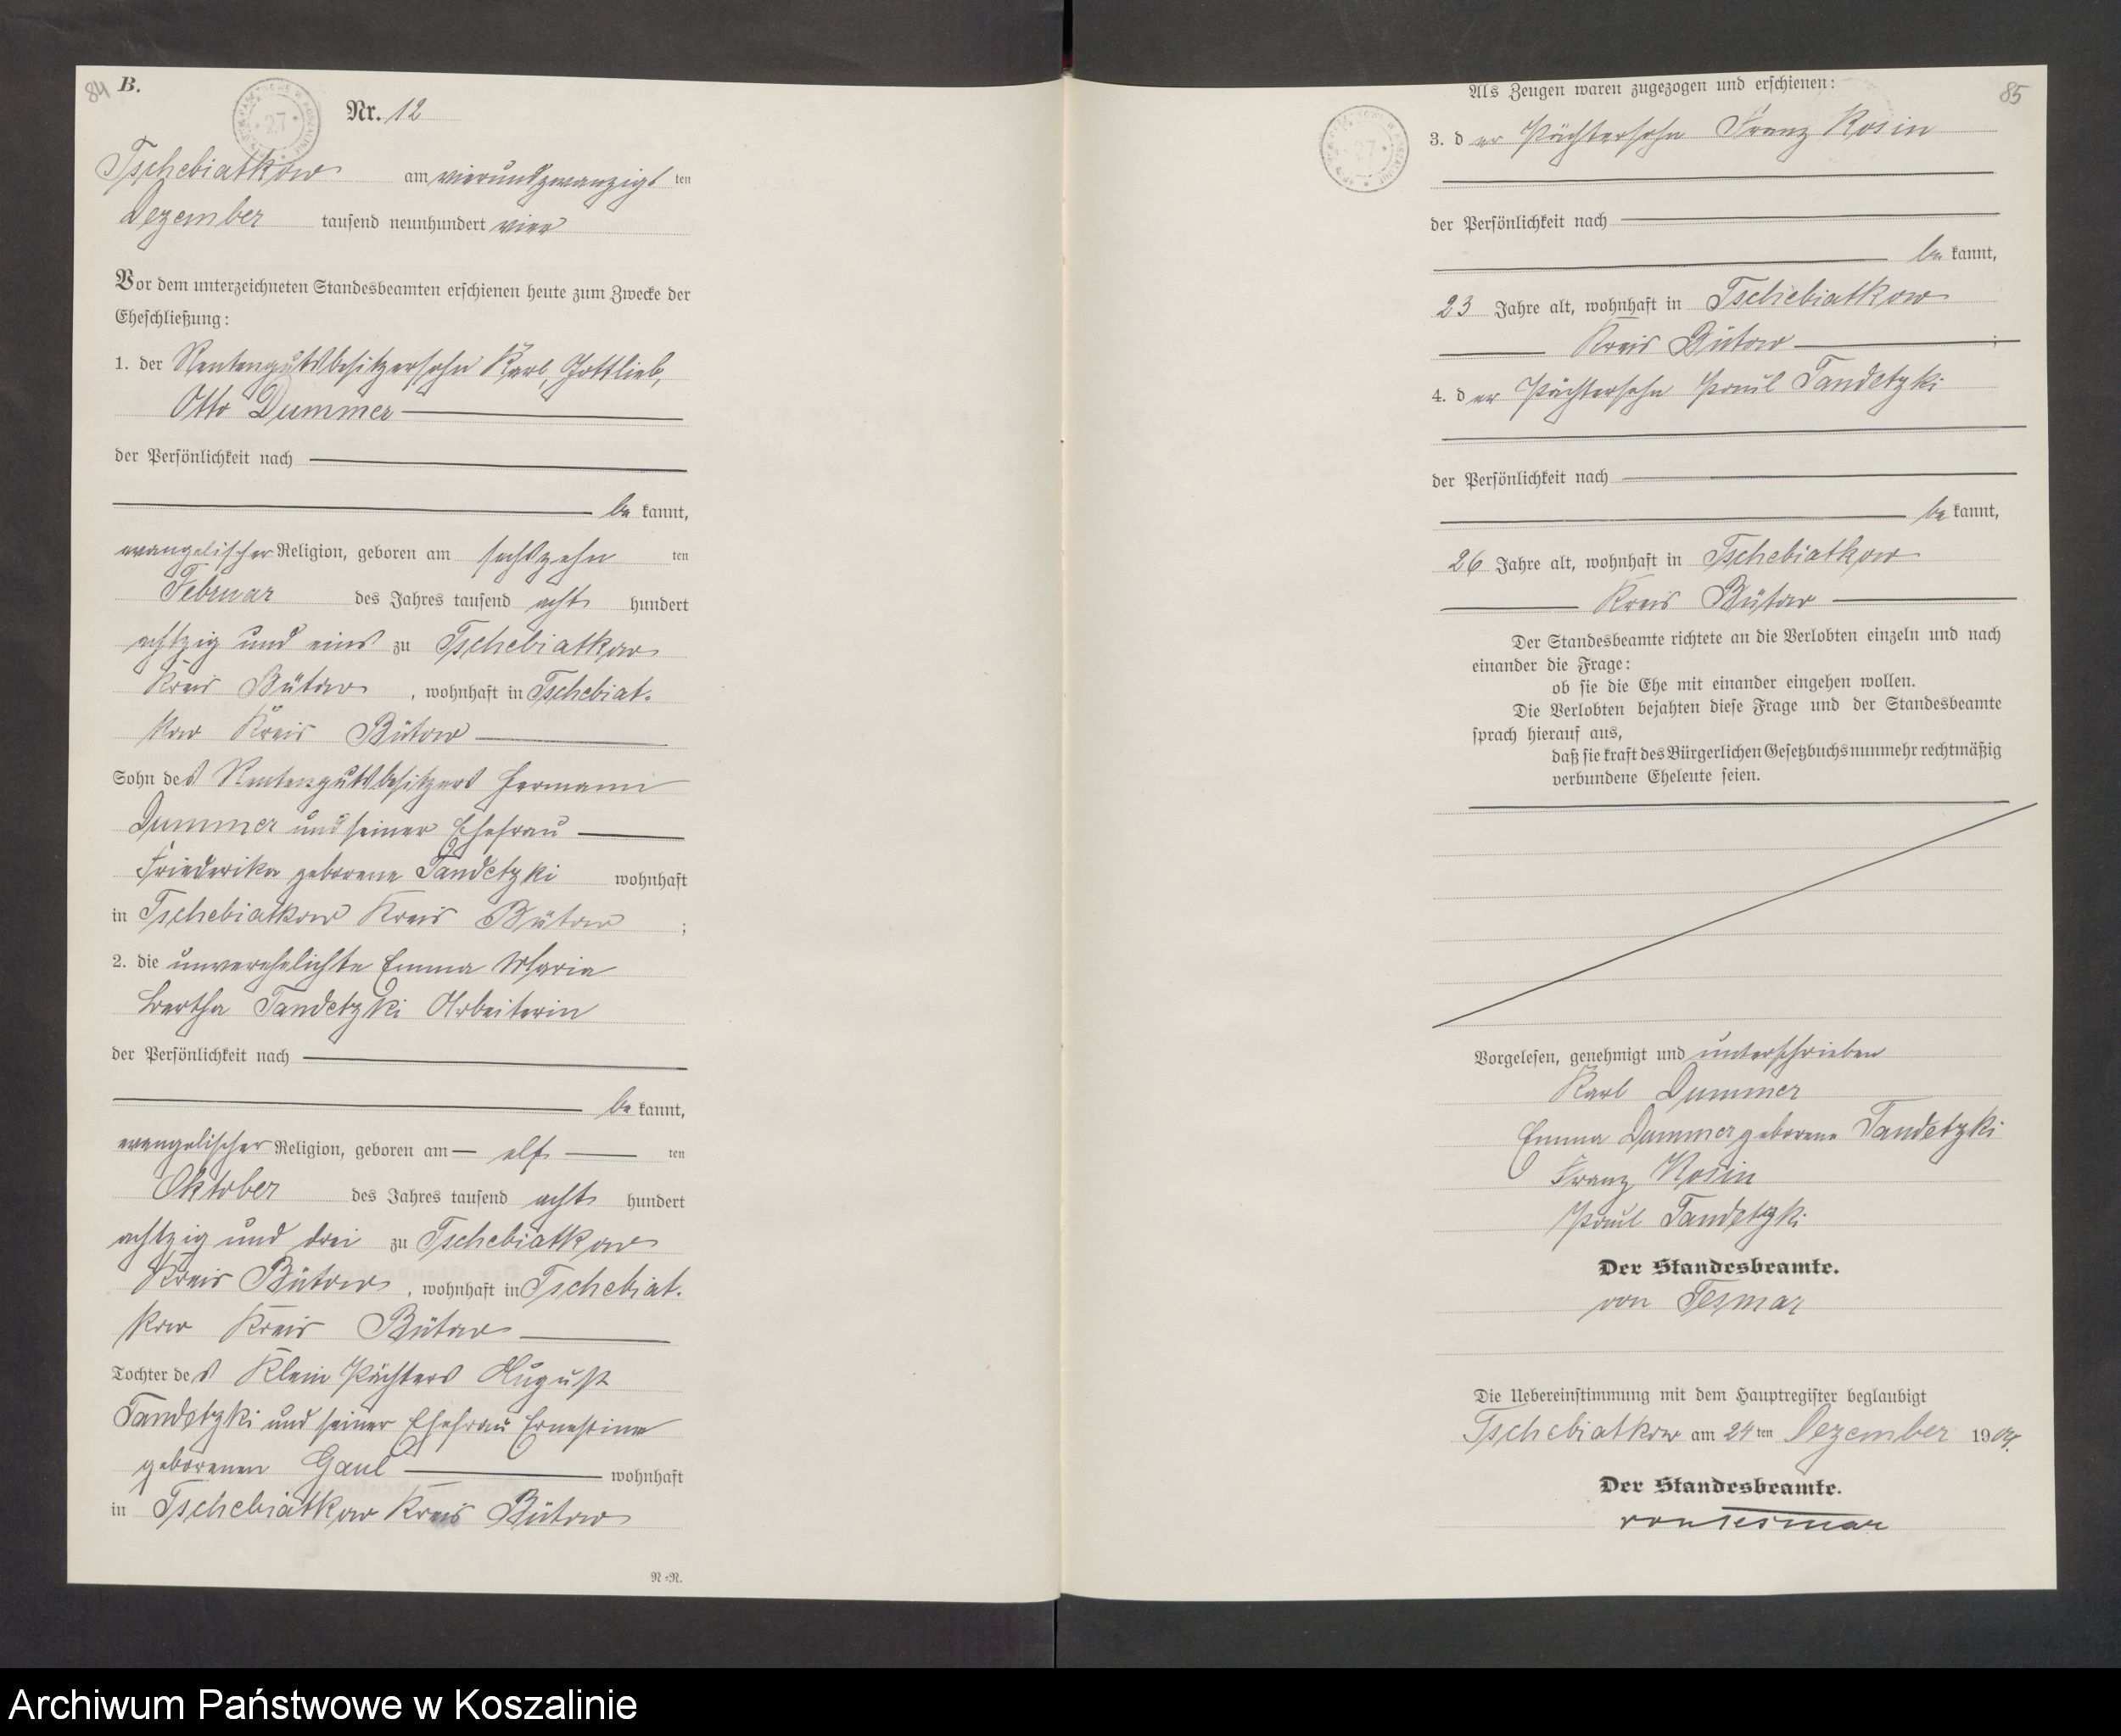 84 B.
Nr. 12
Tschebiatkow am vierundzwanzigsten
Dezember tausend neunhundert vier
Vor dem unterzeichneten Standesbeamten erschienen heute zum Zwecke der
Eheschließung:
1. der Rentengutsbesitzersohn Karl, Gottlieb,
Otto Dummer
der Persönlichkeit nach
bekannt,
evangelischer Religion, geboren am sechszehn ten
Februar des Jahres tausend acht hundert
achtzig und eins zu Tschebiatkow
Kreis Bütow, wohnhaft in Tschebiat-
kow Kreis Bütow
Sohn des Rentengutsbesitzers Hermann
Dummer und seiner Ehefrau
Friederike geborene Tandetzki wohnhaft
in Tschebiatkow Kreis Bütow ;
2. die unverehelichte Emma Maria
Bertha Tandetzki Arbeiterin
der Persönlichkeit nach
bekannt,
evangelischer Religion, geboren am elf ten
Oktober des Jahres tausend acht hundert
achtzig und drei zu Tschebiatkow
Kreis Bütow, wohnhaft in Tschebiat-
kow Kreis Bütow
Tochter des Klein Pächters August
Tandetzki und seiner Ehefrau Ernestine
geborenen Gaul wohnhaft
in Tschebiatkow Kreis Bütow
N-R.
85
Als Zeugen waren zugezogen und erschienen:
3. der Pächtersohn Franz Rosin
der Persönlichkeit nach
bekannt,
23 Jahre alt, wohnhaft in Tschebiatkow
Kreis Bütow ;
4. der Pächtersohn Paul Tandetzki
der Persönlichkeit nach
bekannt,
26 Jahre alt, wohnhaft in Tschebiatkow
Kreis Bütow
Der Standesbeamte richtete an die Verlobten einzeln und nach
einander die Frage:
ob sie die Ehe mit einander eingehen wollen.
Die Verlobten bejahten diese Frage und der Standesbeamte
sprach hierauf aus,
daß sie kraft des Bürgerlichen Gesetzbuchs nunmehr rechtmäßig
verbundene Eheleute seien.
Vorgelesen, genehmigt und unterschrieben
Karl Dummer
Emma Dummer geborene Tandetzki
Franz Rosin
Paul Tandetzki
Der Standesbeamte.
von Tesmar
Die Uebereinstimmung mit dem Hauptregister beglaubigt
Tschebiatkow am 24ten Dezember 1904.
Der Standesbeamte.
von Tesmar
Archiwum Państwowe w Koszalinie